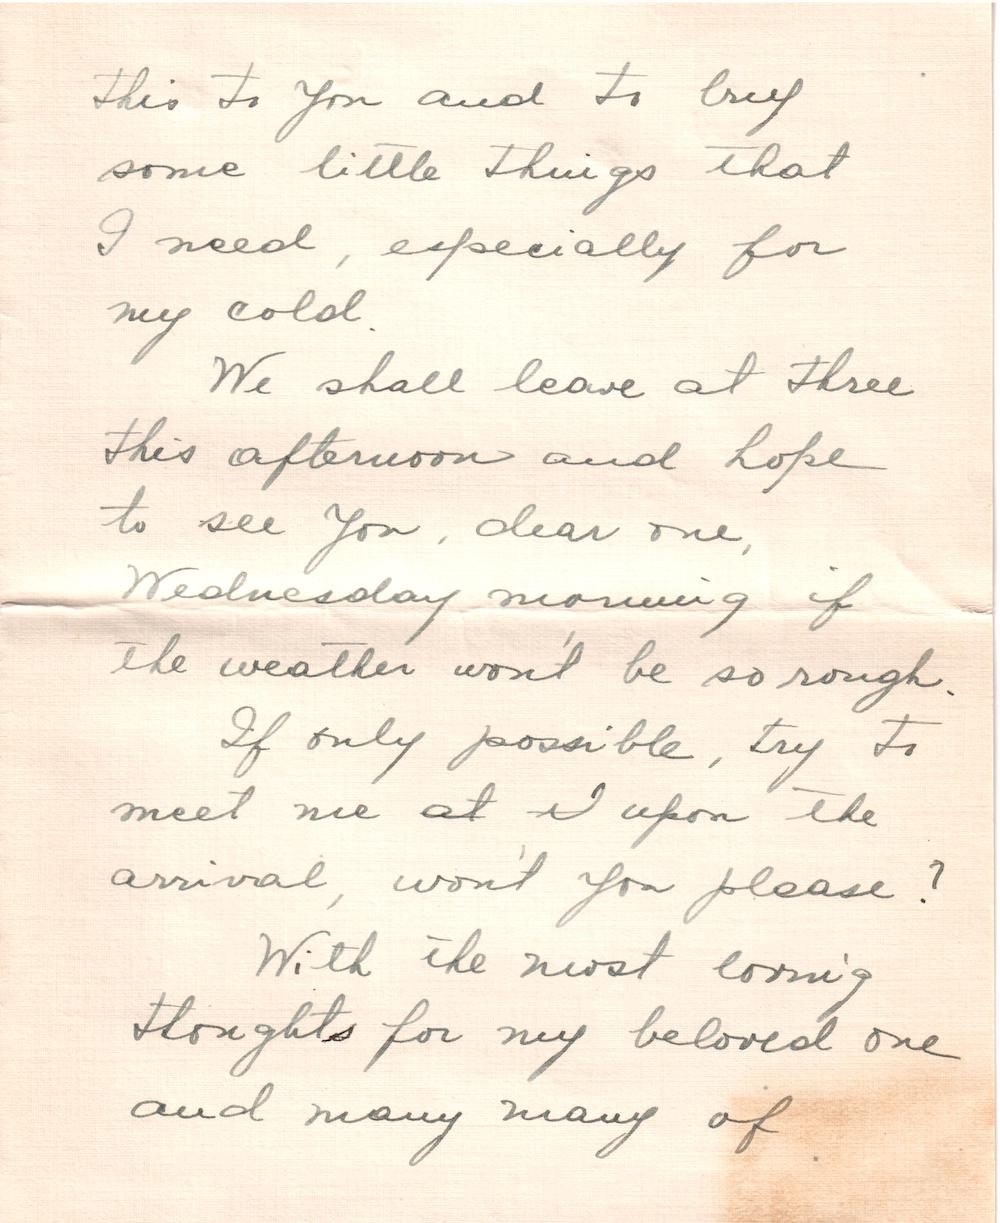 this to you and to buy
some little things that
I need, especially for
my cold.
We shall leave at three
this afternoon and hope
to see you, dear one,
Wednesday morning if
the weather won't be so rough.
If only possible, try to
meet me at upon the
arrival, won't you please?
With the most loving
thoughts for my beloved one
and many many of